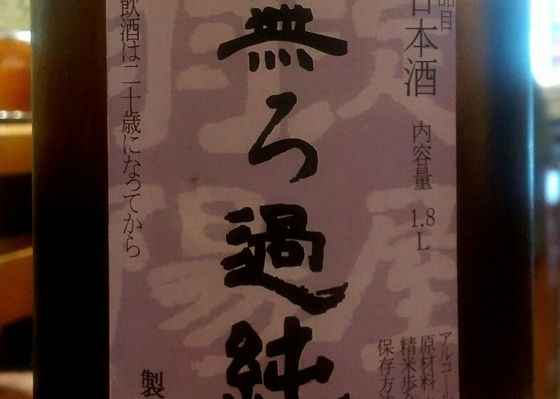 品目
日本酒
内容量 1.8L
アルコール
原材料
精米歩合
保存方法
無ろ過純
飲酒は二十歳になってから
製